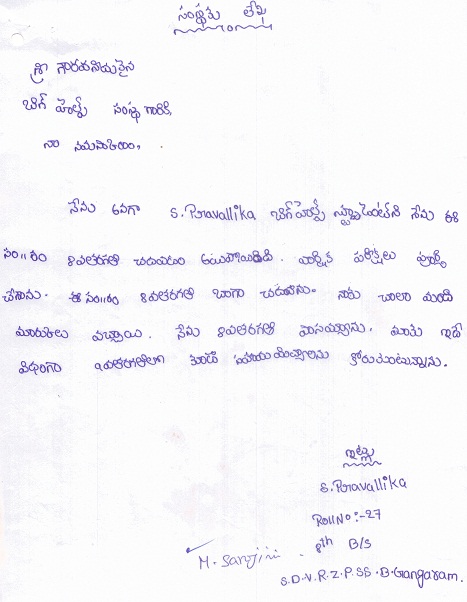 సంస్థకు లేఖ
శ్రీ గౌరవనీయులైన
బిగ్ హెల్ప్ సంస్థ గారికి,
నా నమస్కారం,
నేను అనగా S. Pravallika బిగ్ హెల్ప్ స్టూడెంట్‌ని నేను ఈ
సం॥రం 8వతరగతి చదవటం అయిపోయింది. వార్షిక పరీక్షలు పూర్తి
చేశాను. ఈ సం॥రం 8వతరగతి బాగా చదివాను. నాకు చాలా మంచి
మార్కులు వచ్చాయి. నేను 8వతరగతి పాసయ్యాను. మాకు ఇదే
విధంగా 9వతరగతిలో కూడా సహాయమివ్వాలని కోరుకుంటున్నాను.
ఇట్లు
S. Pravallika
Roll No :- 27
8th B/S
M. Sarojini
S.D.V.R.Z.P.SS.B.Gangaram.